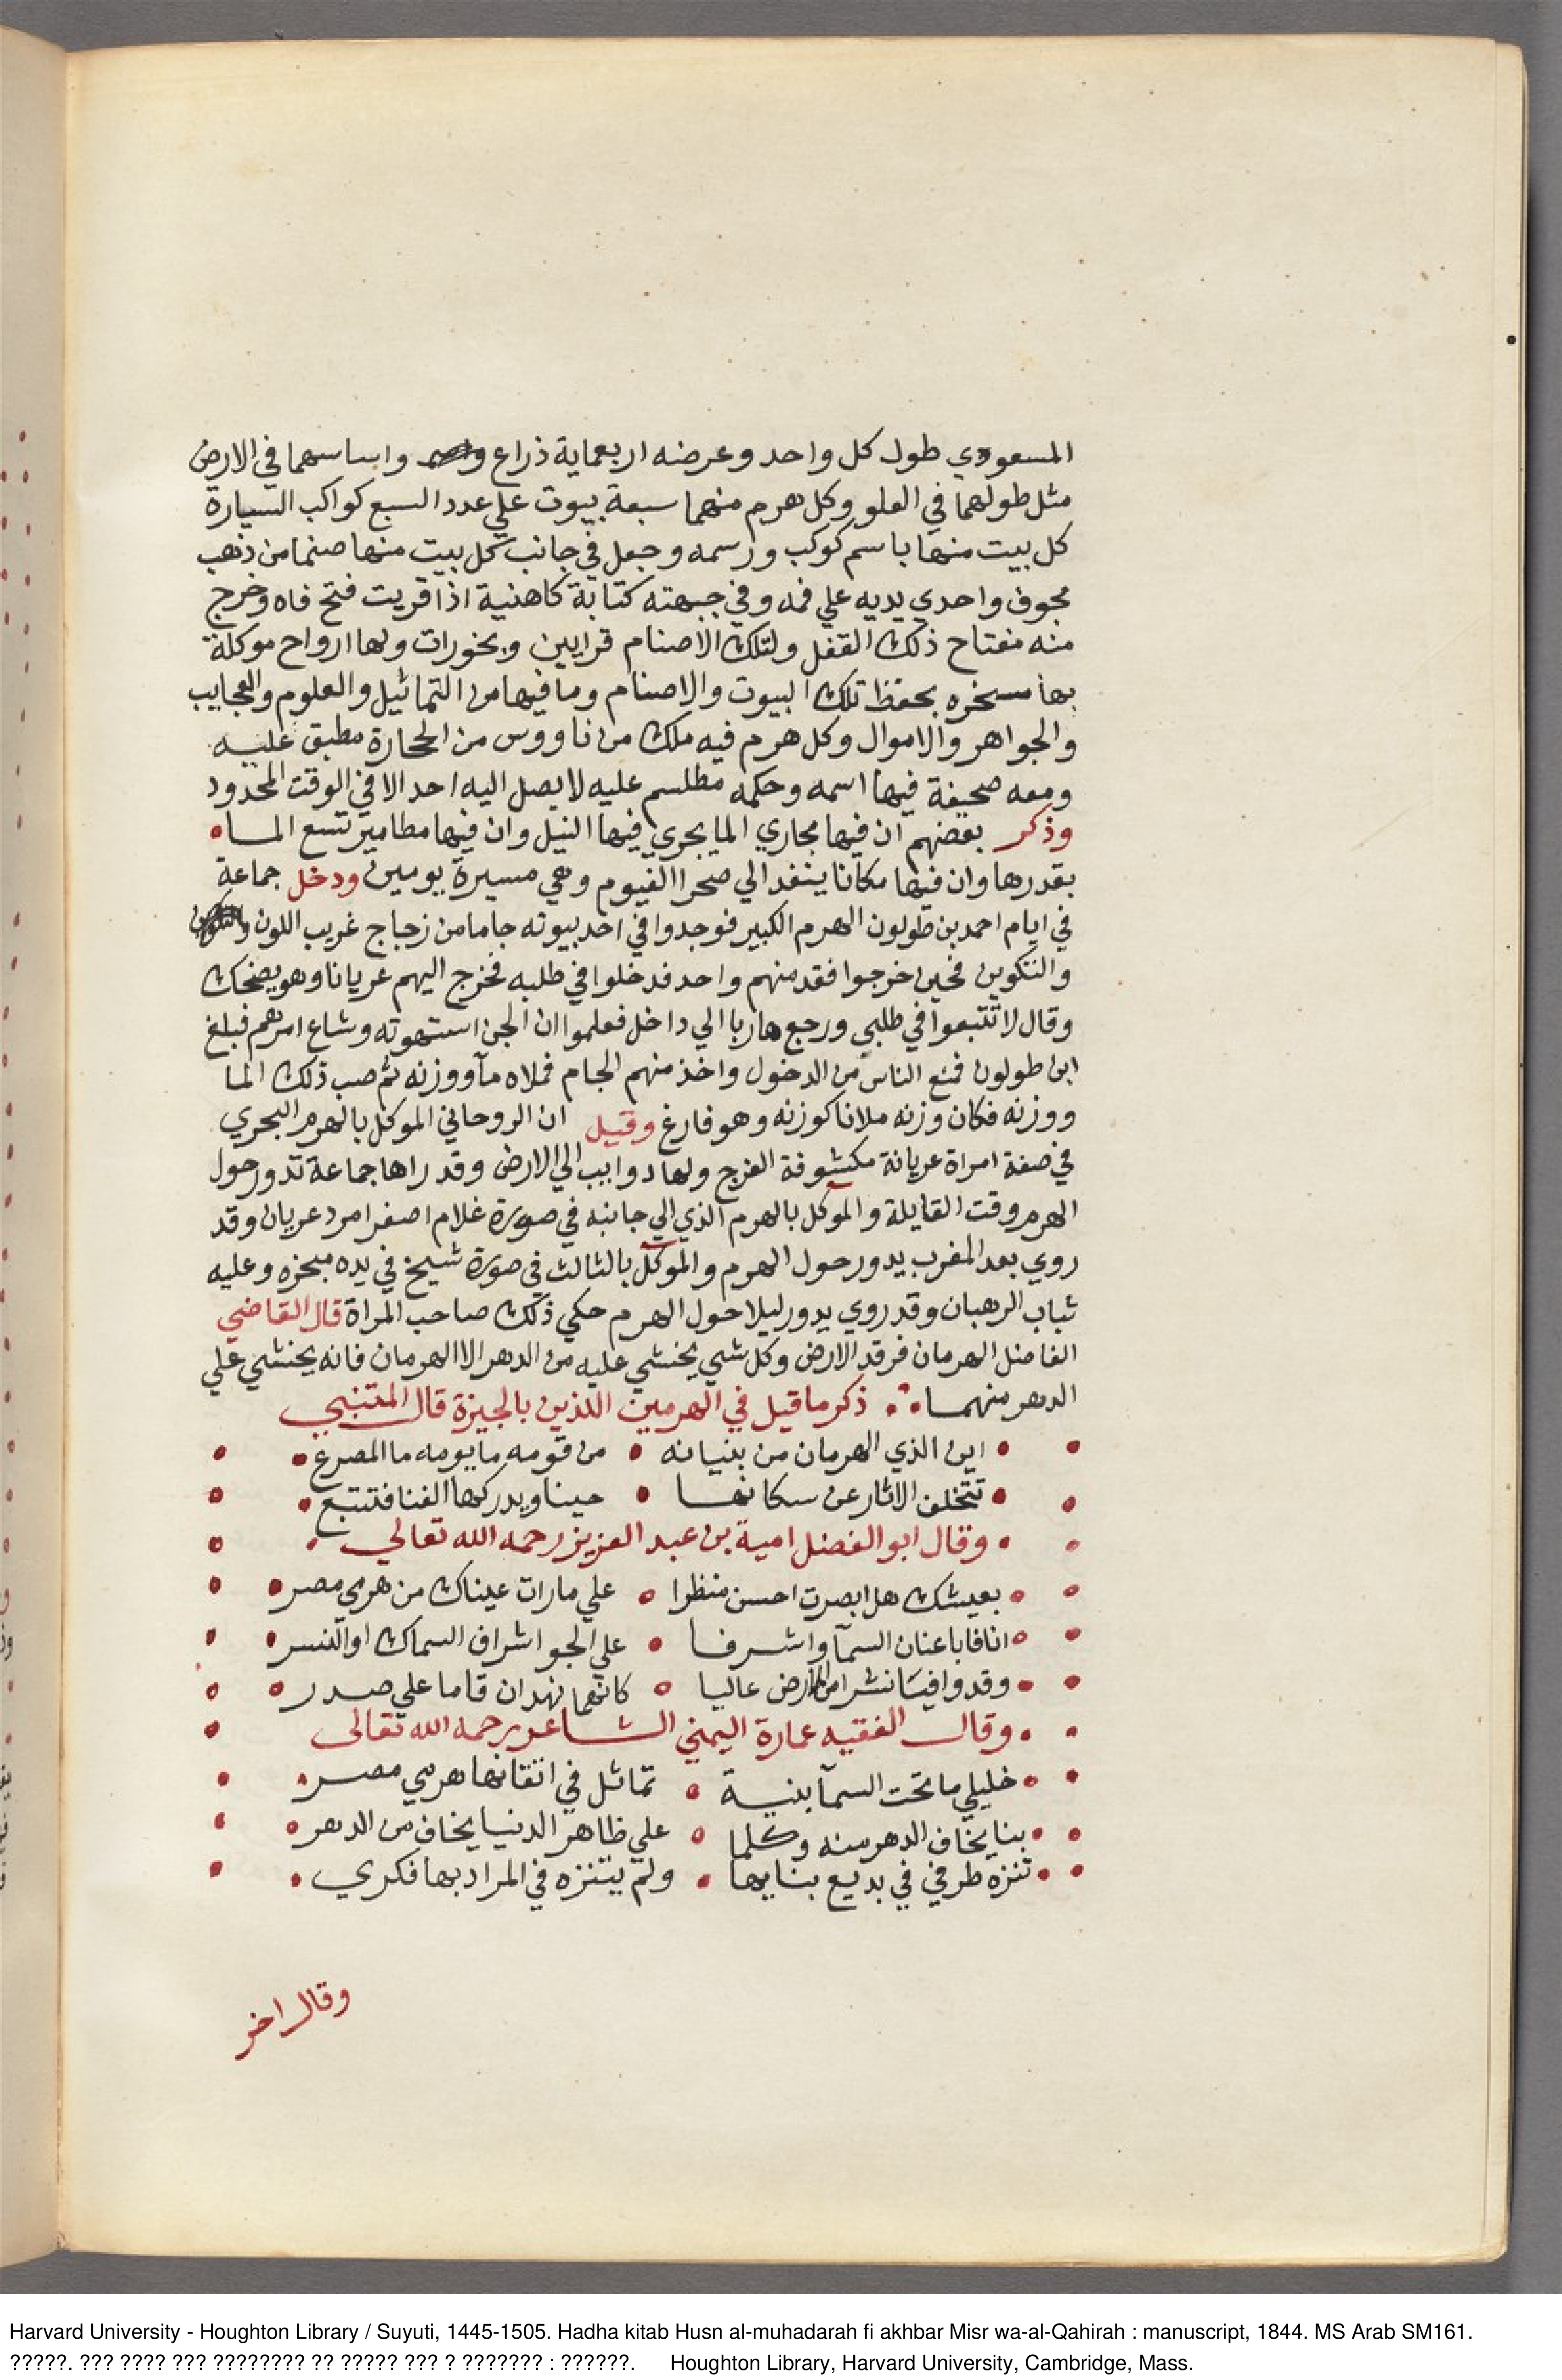 المسعودي طول كل واحد وعرضه اربعماية ذراع واساسهما في الارض
مثل طولهما في العلو وكل هرم منهما سبعة بيوت علي عدد السبع كواكب السيارة
كل بيت منها باسم كوكب ورسمه وجعل في جانب كل بيت منها صنما من ذهب
مجوف واحدي يديه علي فمه وفي جبهته كتابة كاهنية اذا قريت فتح فاه وخرج
منه مفتاح ذلك القفل ولتلك الاصنام قرابين وبخورات ولها ارواح موكلة
بها مسخره بحفظ تلك البيوت والاصنام وما فيها من التماثيل والعلوم والعجايب
والجواهر والاموال وكل هرم فيه ملك من ناووس من الحجارة مطبق عليه
ومعه صحيفة فيها اسمه وحكمه مطلسم عليه لا يصل اليه احد الا في الوقت المحدود
وذكر بعضهم ان فيها مجاري الما يجري فيها النيل وان فيها مطامير تسع الما
بقدرها وان فيها مكانا ينفد الي صحرا الفيوم وهي مسيرة يومين ودخل جماعة
في ايام احمد بن طولون الهرم الكبير فوجدوا في احد بيوته جاما من زجاج غريب اللون
والتكوين فحين خرجوا فقد منهم واحد فدخلوا في طلبه فخرج اليهم عريانا وهو يضحك
وقال لا تتبعوا في طلبي ورجع هاربا الي داخل فعلموا ان الجن استهوته وشاع امرهم فبلغ
ابن طولون فمنع الناس من الدخول واخذ منهم الجام فملاه مآ ووزنه ثم صب ذلك الما
ووزنه فكان وزنه ملانا كوزنه وهو فارغ وقيل ان الروحاني الموكل بالهرم البحري
في صفة امراة عريانة مكشوفة الفرج ولها دوايب الي الارض وقد راها جماعة تدور حول
الهرم وقت القايلة والموكل بالهرم الذي الي جانبه في صورة غلام اصفر امرد عريان وقد
روي بعد المغرب يدور حول الهرم والموكل بالثالث في صورة شيخ في يده مبخره وعليه
ثياب الرهبان وقد روي يدور ليلا حول الهرم حكي ذلك صاحب المراة قال القاضي
الفاضل الهرمان فرقد الارض وكل شي يخشي عليه من الدهر الا الهرمان فانه يخشي علي
الدهر منهما ذكر ما قيل في الهرمين اللذين بالجيزة قال المتنبي
اين الذي الهرمان من بنيانه • من قومه ما يومه ما المصرع
تتخلف الاثار عن سكانها • حينا ويدركها الفنا فتتبع
وقال ابو الفضل امية بن عبد العزيز رحمه الله تعالي
بعيشك هل ابصرت احسن منظرا • علي ما رات عيناك من هرمي مصر
انافا باعنان السمآ واشرفا • علي الجو اشراف السماك او النسر
وقد وافيا نشرا من الارض عاليا • كانهما نهدان قاما علي صدر
وقال الفقيه عمارة اليمني الشاعر رحمه الله تعالى
خليلي ما تحت السمآ بنية • تماثل في اتقانها هرمي مصر
بنا يخاف الدهر منه وكلما • علي ظاهر الدنيا يخاف من الدهر
تنزه طرفي في بديع بنايها • ولم يتنزه في المراد بها فكري
وقال اخر
Harvard University - Houghton Library / Suyuti, 1445-1505. Hadha kitab Husn al-muhadarah fi akhbar Misr wa-al-Qahirah : manuscript, 1844. MS Arab SM161.
?????. ??? ???? ??? ???????? ?? ????? ??? ? ??????? : ??????. Houghton Library, Harvard University, Cambridge, Mass.